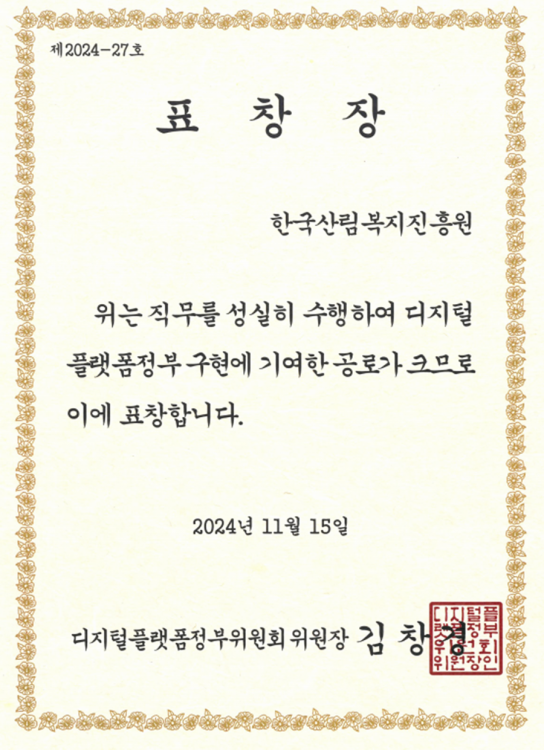 제2024-27호
표 창 장
한국산림복지진흥원
위는 직무를 성실히 수행하여 디지털
플랫폼정부 구현에 기여한 공로가 크므로
이에 표창합니다.
2024년 11월 15일
디지털플랫폼정부위원회위원장 김창경
디지털플
랫폼정부
위원회
위원장인